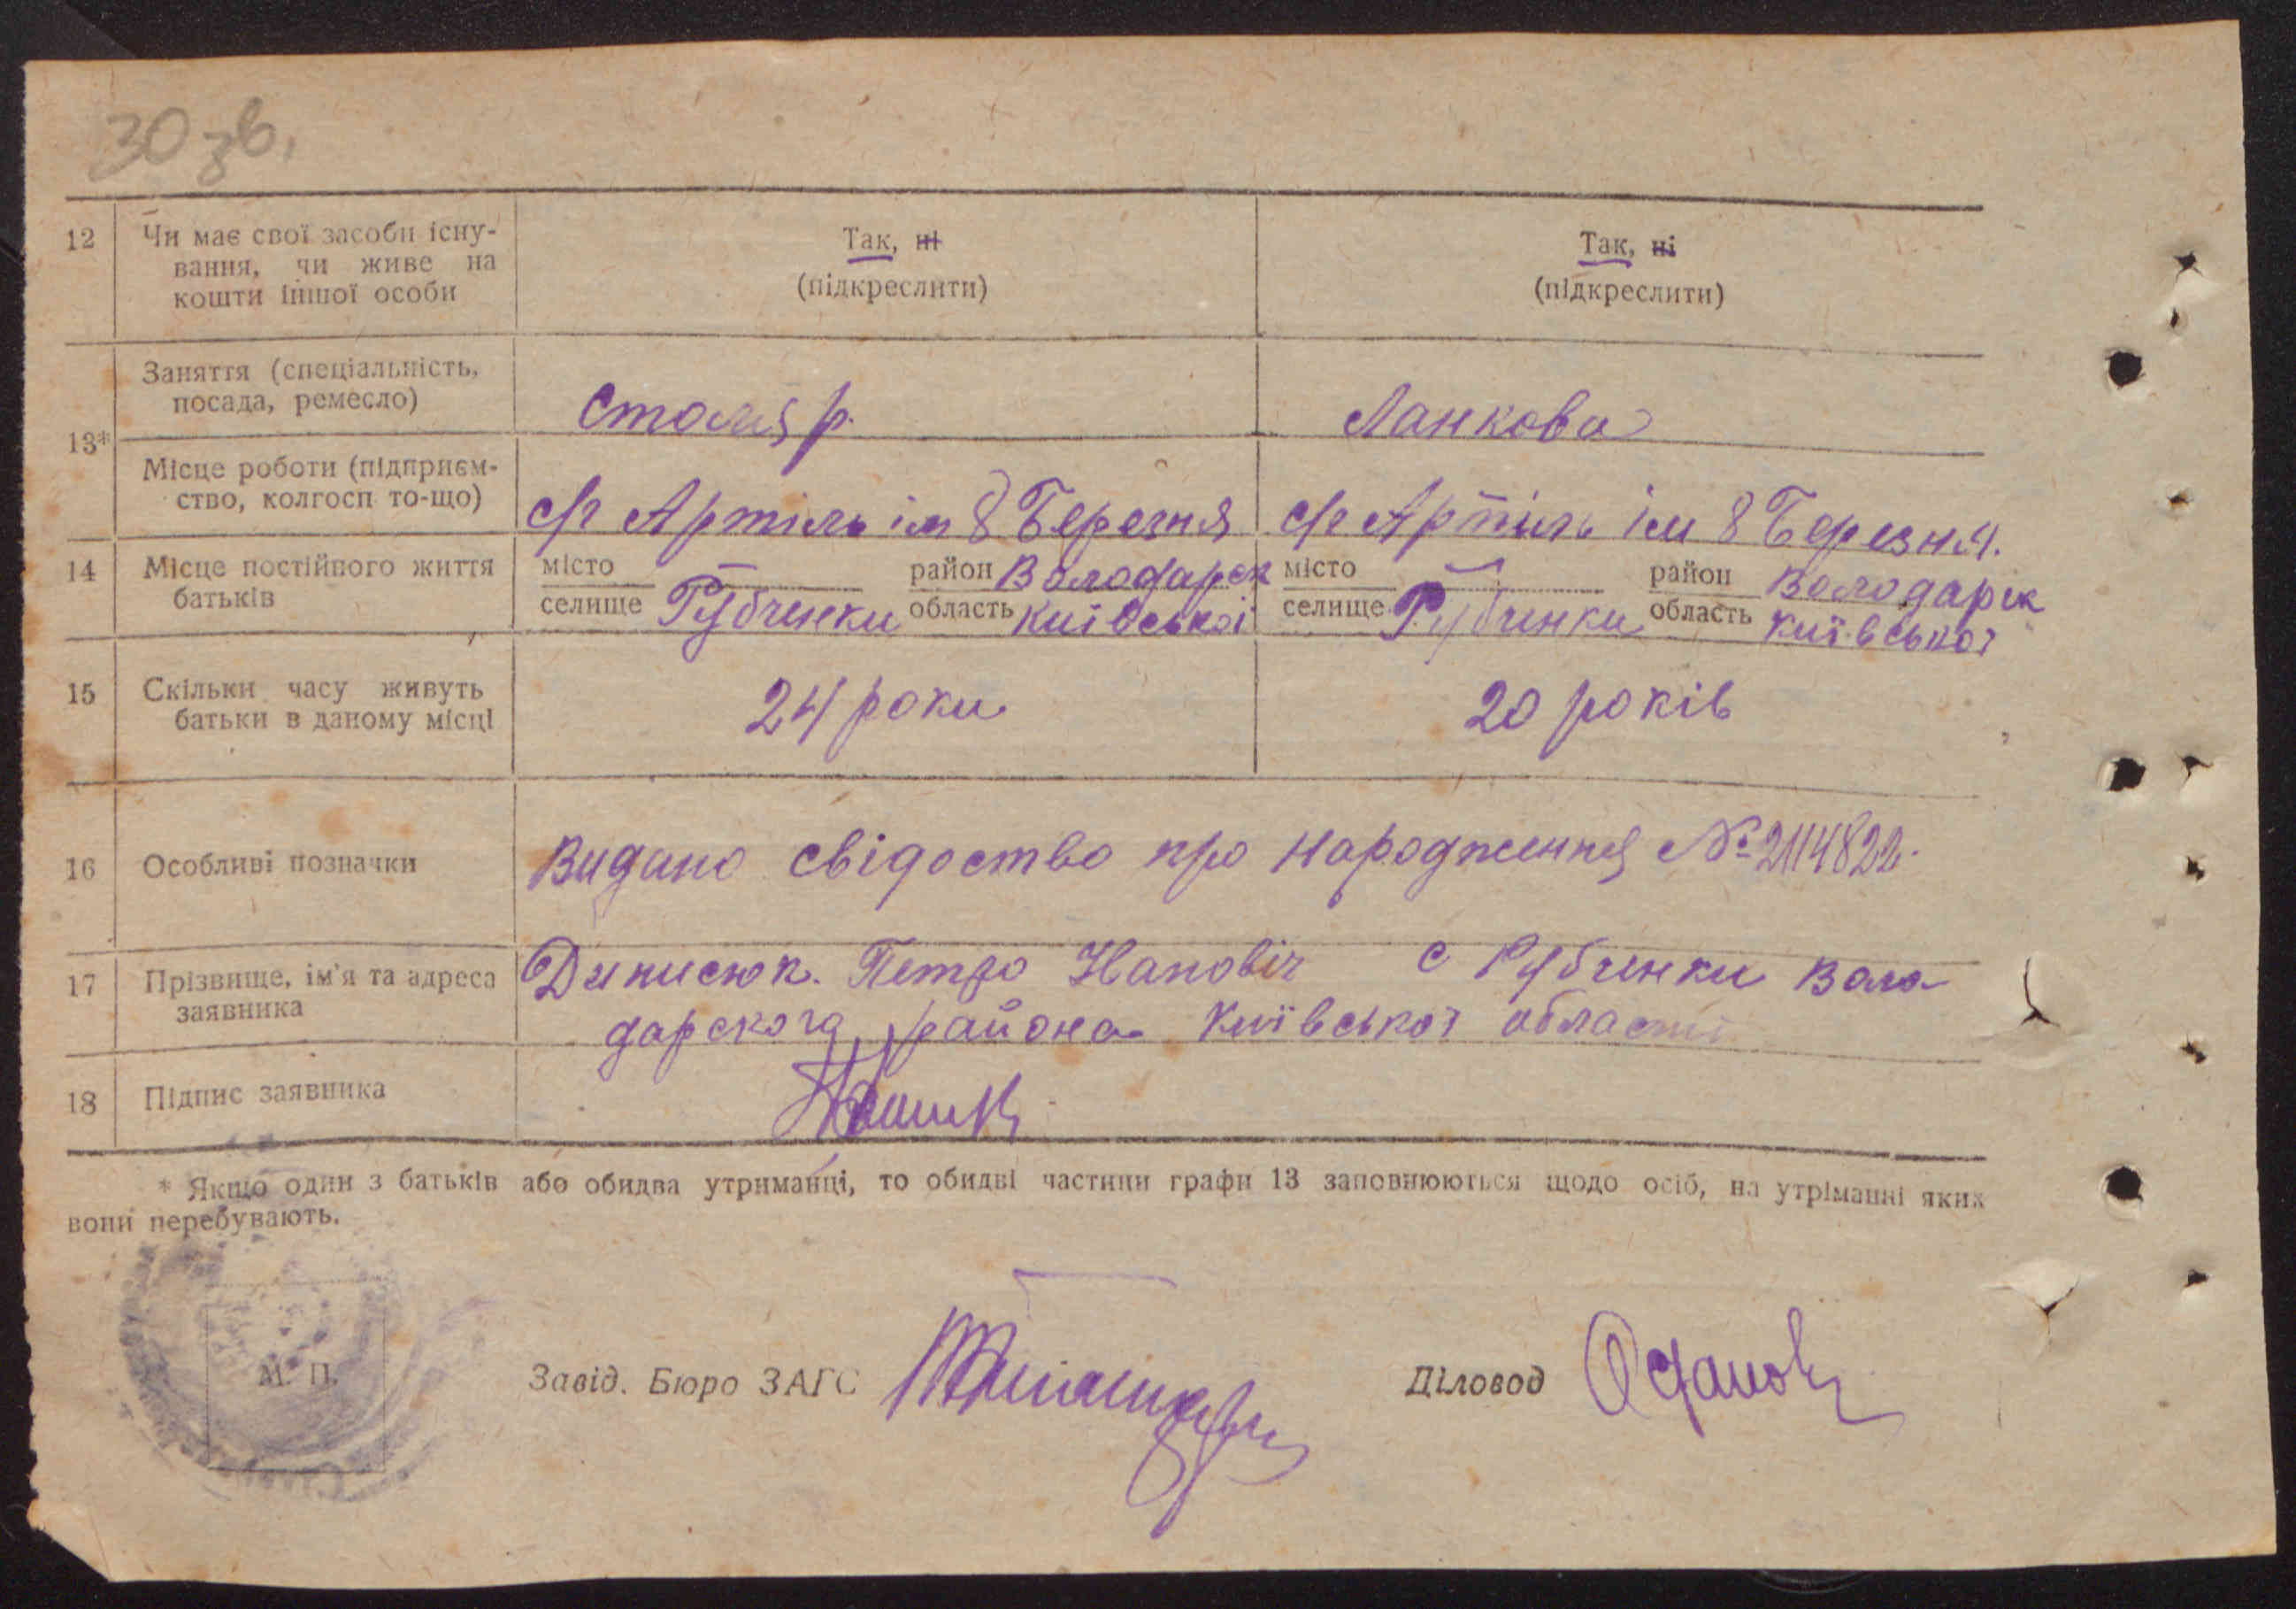 30 зв.
12 Чи має свої засоби існу-
вання, чи живе на
кошти іншої особи
Так, ні
(підкреслити)
Так, ні
(підкреслити)
13* Заняття (спеціальність,
посада, ремесло)
Столяр.
Ланкова
Місце роботи (підприєм-
ство, колгосп то-що)
с/г Артіль ім 8 Березня
с/г Артіль ім 8 Березня.
14 Місце постійного життя
батьків
місто
селище Рубченки
район Володарск
область Київської
місто
селище Рубченки
район Володарск
область Київської
15 Скільки часу живуть
батьки в даному місці
24 роки
20 років
16 Особливі позначки
Видано свідоство про народження № 2114822.
17 Прізвище, ім'я та адреса
заявника
Динисюк. Петро с Рубченки Воло
дарского района Київської області
18 Підпис заявника
* Якщо один з батьків або обидва утриманці, то обидві частини графи 13 заповнюються щодо осіб, на утріманні яких
вони перебувають.
М. П.
Завід. Бюро ЗАГС
Діловод